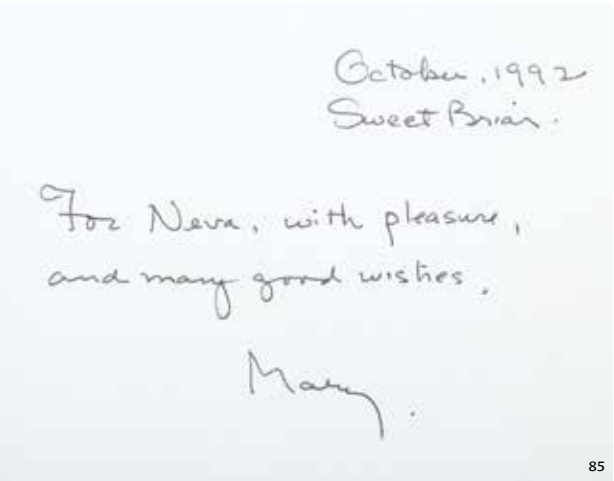 October, 1992
Sweet Briar.
For Neva, with pleasure,
and many good wishes.
Mary.
85